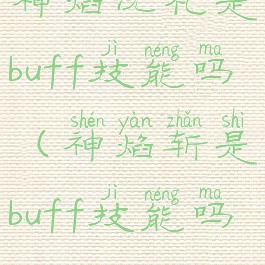 神焰洗礼是
jì néng ma
buff技能吗
shén yàn zhǎn shì
(神焰斩是
jì néng ma
buff技能吗